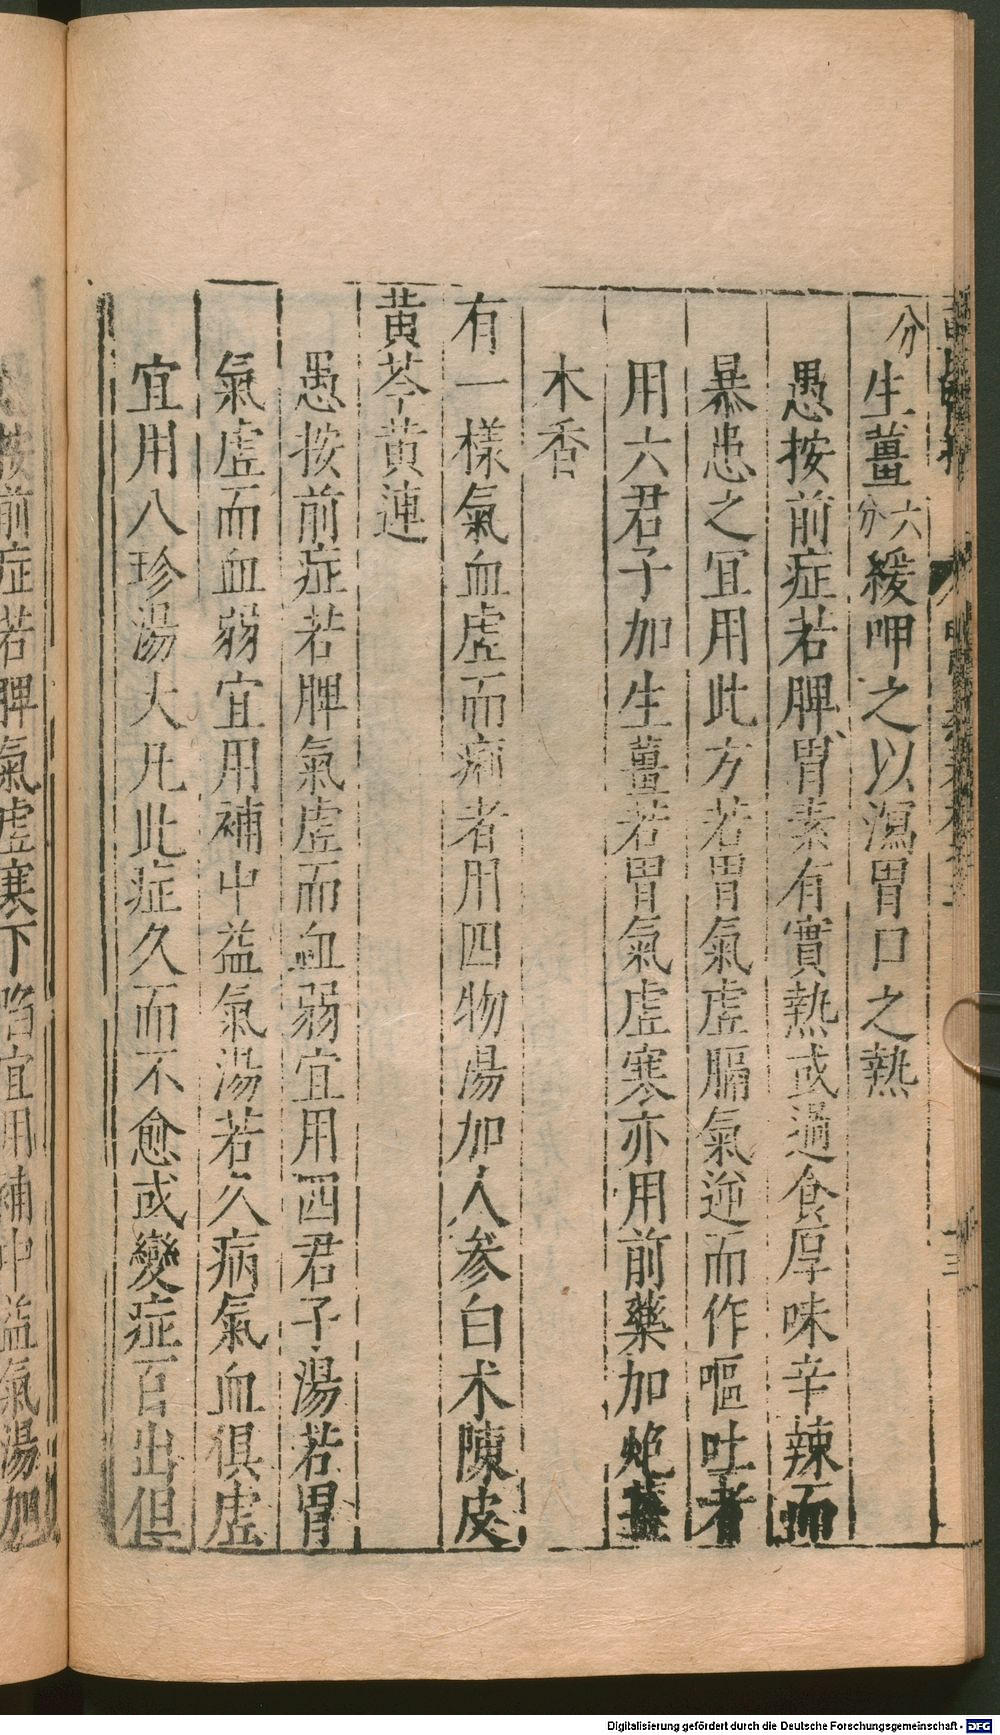 分生薑六分緩呷之以瀉胃口之熱
愚按前症若脾胃素有實熱或過食厚味辛辣而
暴患之宜用此方若胃氣虛膈氣逆而作嘔吐者
用六君子加生薑若胃氣虛寒亦用前藥加炮薑
木香
有一樣氣血虛而痛者用四物湯加人参白术陳皮
黃芩黃連
愚按前症若脾氣虛而血弱宜用四君子湯若胃
氣虛而血弱宜用補中益氣湯若久病氣血俱虛
宜用八珍湯大凡此症久而不愈或變症百出但
按前症若脾氣虛寒下陷宜用補中益氣湯加
Digitalisierung gefördert durch die Deutsche Forschungsgemeinschaft - DFG